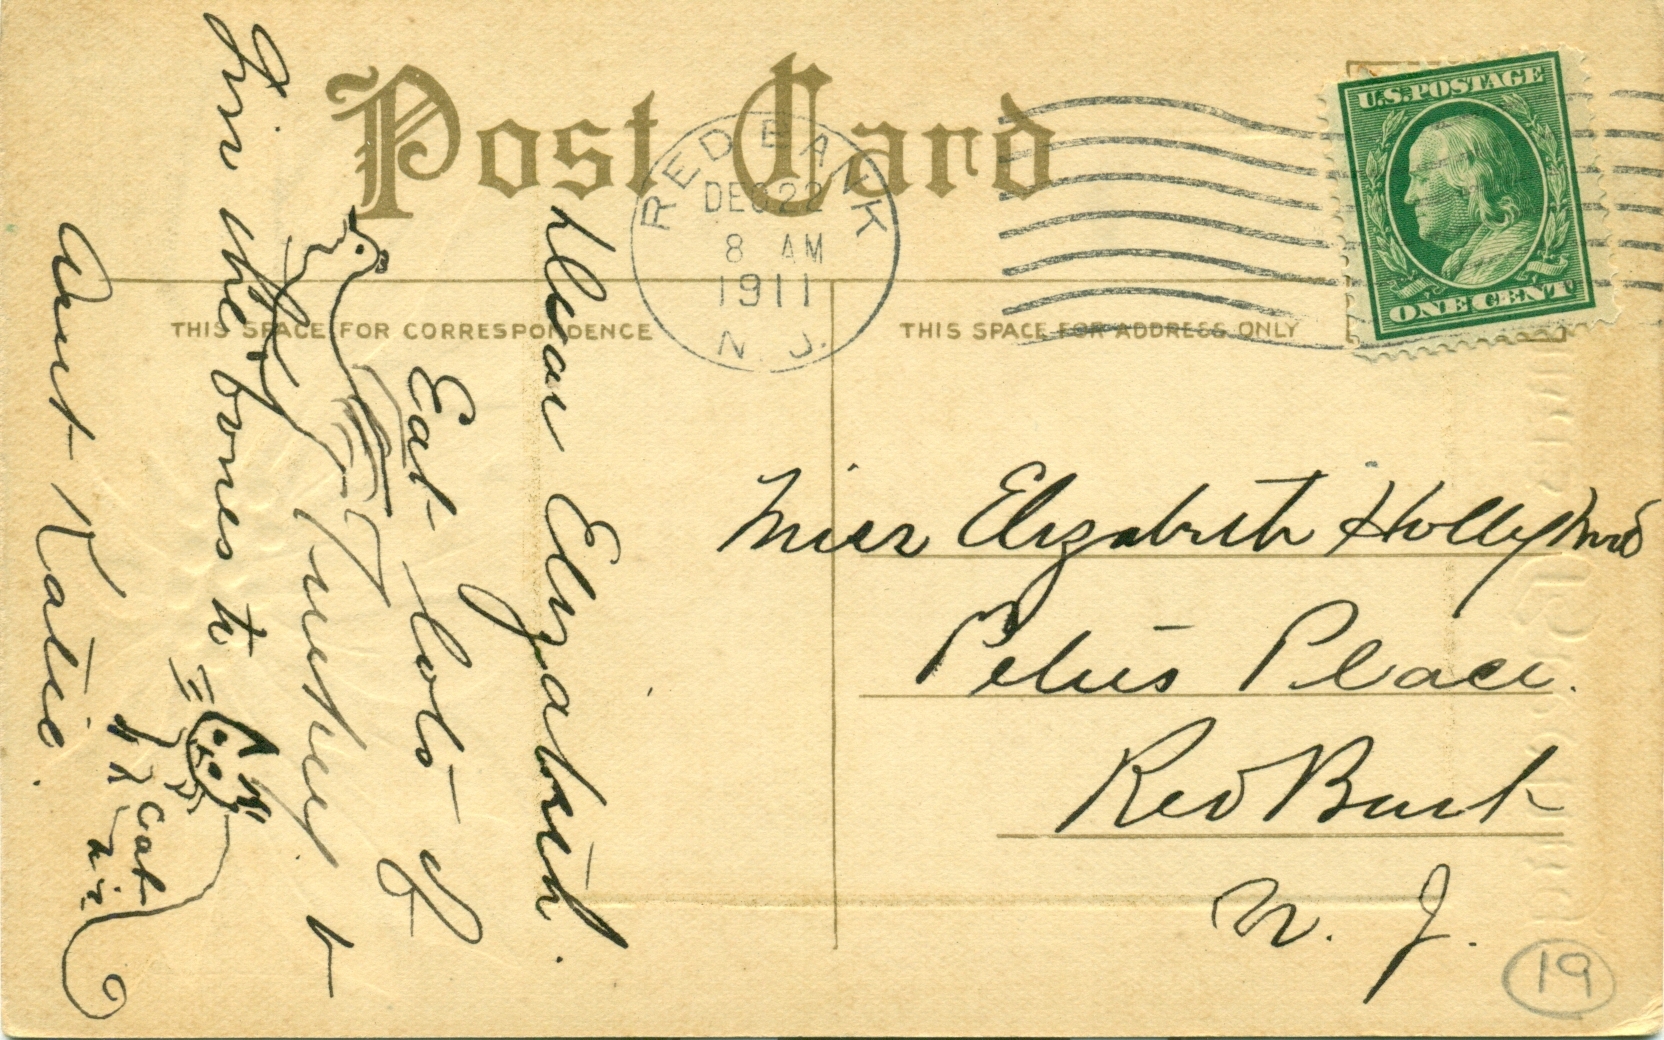 Post Card
RED BANK
DEC 22
8 AM
1911
N. J.
U.S. POSTAGE
ONE CENT
THIS SPACE FOR CORRESPONDENCE
THIS SPACE FOR ADDRESS ONLY
Dear Elizabeth.
Eat lots of
Turkey &
Give the bones to
cat
Aunt Katie.
Miss Elizabeth Hollywood
Peters Place.
Red Bank
N. J.
19